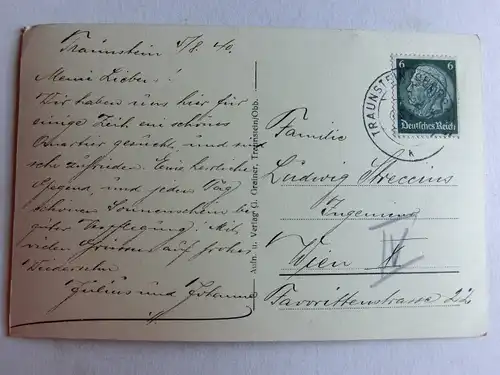 Traunstein 5/8. 40.
Meine Lieben!
Wir haben uns hier für
einige Zeit ein schönes
Quartier gesucht und sind
sehr zufrieden. Eine herrliche
Gegend, und jeden Tag
schönen Sonnenschein bei
guter Verpflegung. Mit
vielen Grüssen auf frohes
Wiedersehn
Julius und Johanna
Aufn. u. Verlag G. Greiner, Traunstein/Obb.
6 6
Deutsches Reich
TRAUNSTEIN
k
Familie
Ludwig Streccius
Ingenieur
Wien
IV
Favorittenstrasse 22